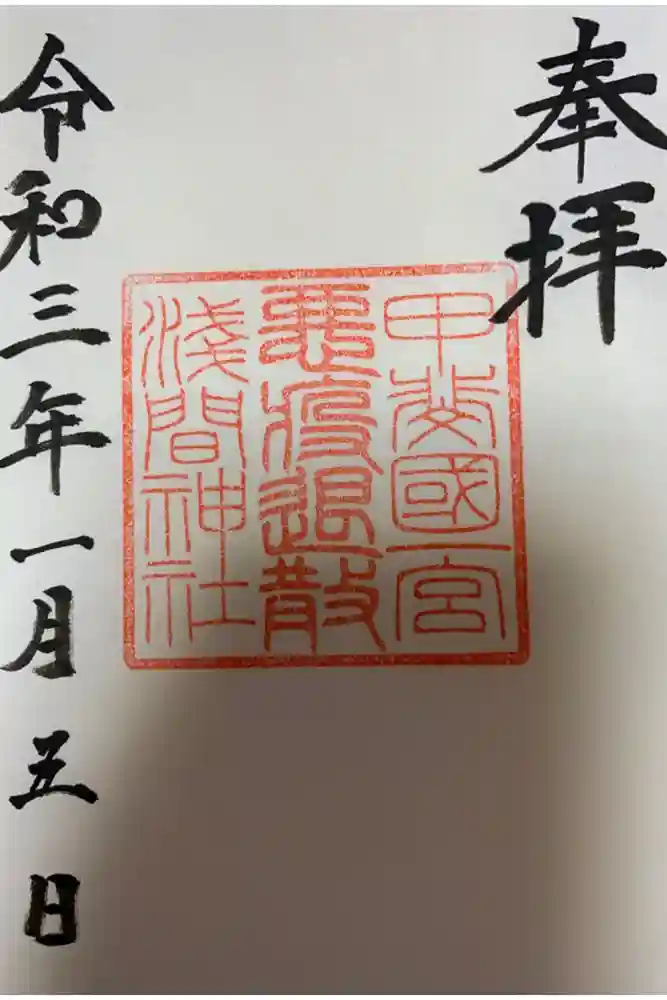 奉拝
甲斐國一宮
悪疫退散
浅間神社
令和三年一月五日